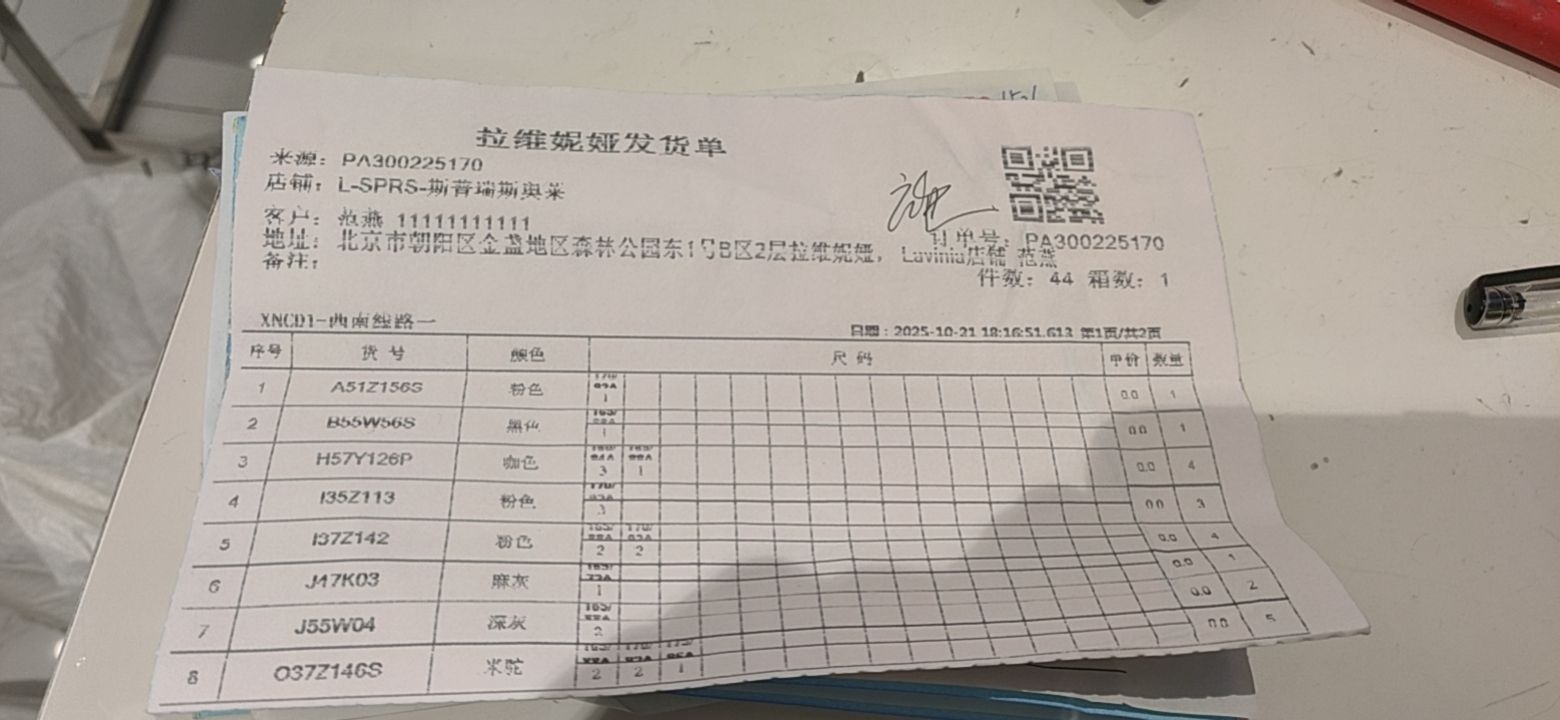 拉维妮娅发货单
来源：PA300225170
店铺：L-SPRS-斯普瑞斯奥莱
客户：范燕 11111111111
订单号：PA300225170
地址：北京市朝阳区金盏地区森林公园东1号B区2层拉维妮娅，Lavinia店铺 范燕
备注：
件数：44 箱数：1
XNCD1-西南线路一
日期：2025-10-21 18:16:51.613 第1页/共2页
序号 货号 颜色 尺码 单价 数量
1 A51Z156S 粉色 170/92A 1 0.0 1
2 B55W56S 黑色 165/88A 1 0.0 1
3 H57Y126P 咖色 160/84A 3 165/88A 1 0.0 4
4 I35Z113 粉色 170/92A 3 0.0 3
5 I37Z142 粉色 165/88A 2 170/92A 2 0.0 4
6 J47K03 麻灰 165/72A 1 0.0 1
7 J55W04 深灰 165/88A 2 0.0 2
8 O37Z146S 米驼 165/88A 2 170/92A 2 175/96A 1 0.0 5